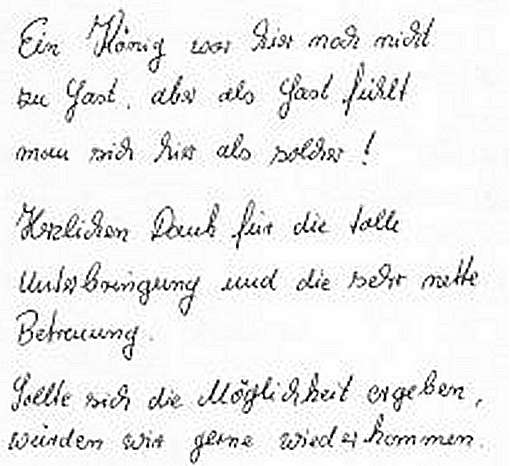 Ein König war hier noch nicht
zu Gast, aber als Gast fühlt
man sich hier als solcher!
Herzlichen Dank für die tolle
Unterbringung und die sehr nette
Betreuung.
Sollte sich die Möglichkeit ergeben,
würden wir gerne wiederkommen.